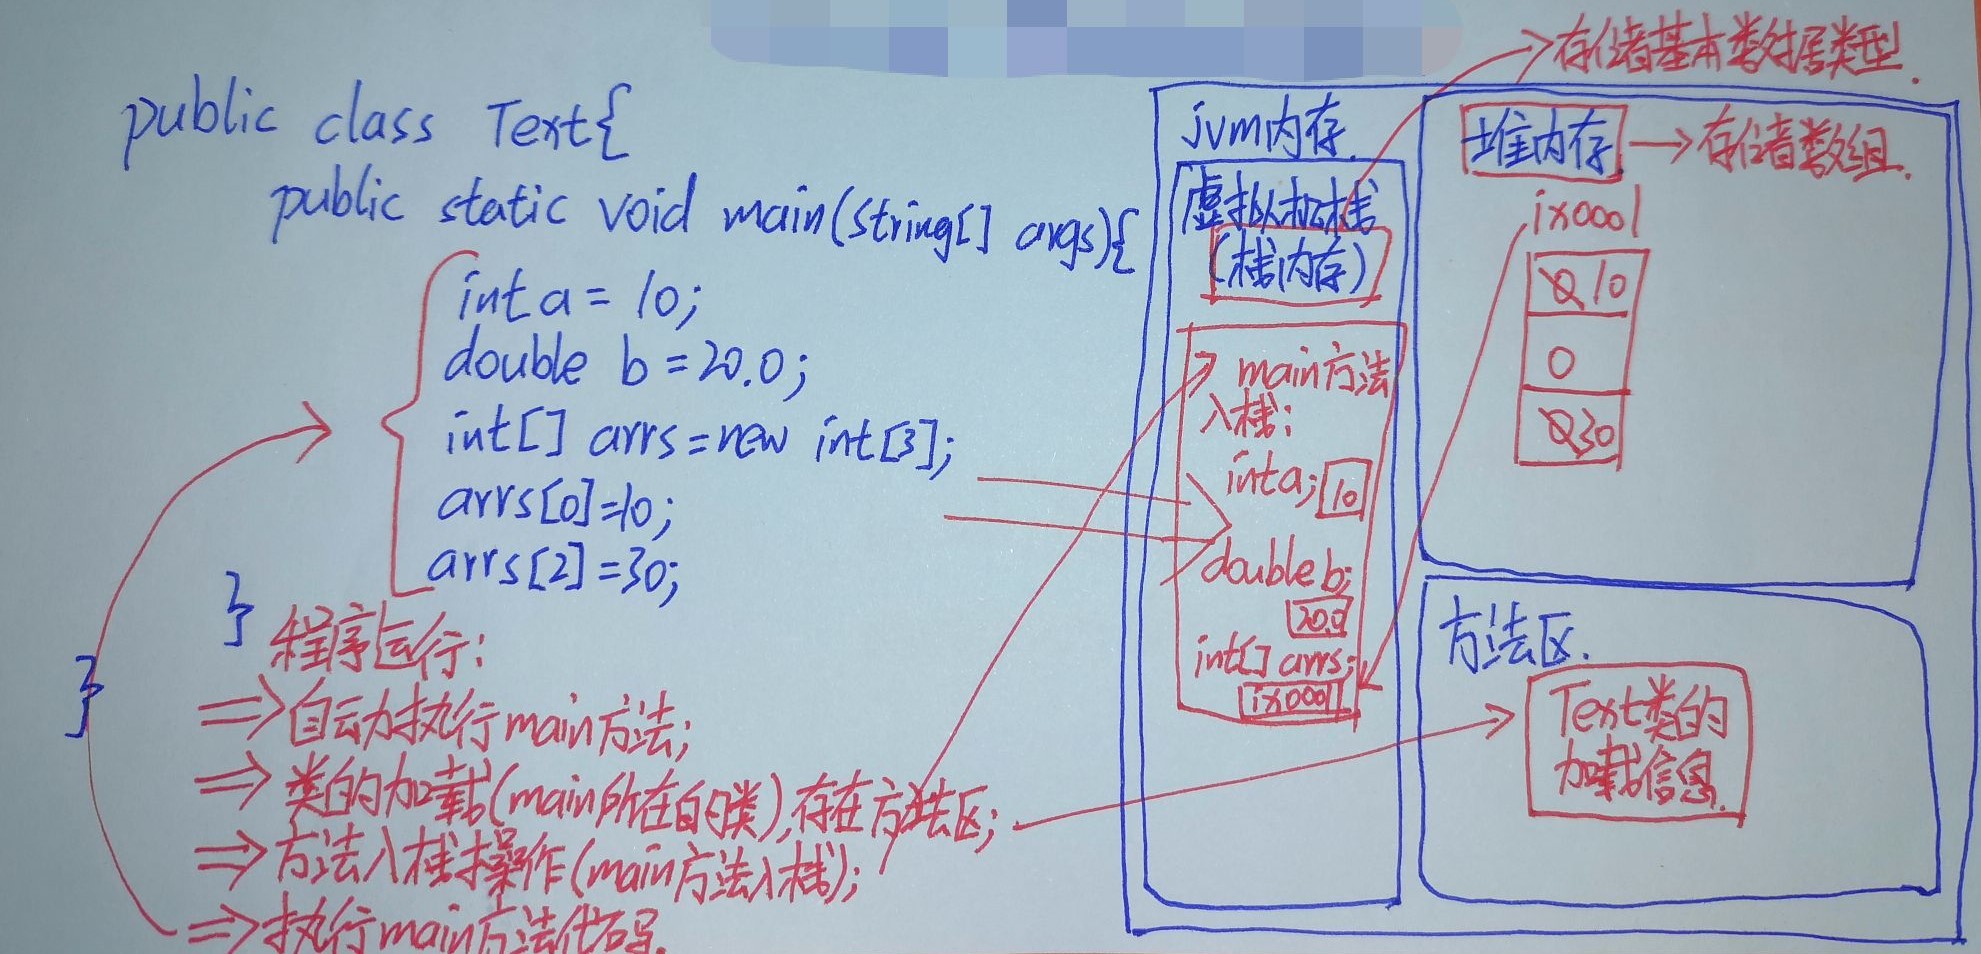 public class Text{
public static void main(String[] args){
int a = 10;
double b = 20.0;
int[] arrs = new int[3];
arrs[0]=10;
arrs[2]=30;
}
}
程序运行:
=>自动执行main方法;
=>类的加载(main所在的类),存在方法区;
=>方法入栈操作(main方法入栈);
=>执行main方法代码.
jvm内存.
虚拟机栈
(栈内存)
→存储基本数据类型.
main方法
入栈:
int a; 10
double b;
20.0
int[] arrs;
ix0001
堆内存→存储数组.
ix0001
0 10
0
0 30
方法区.
Text类的
加载信息.